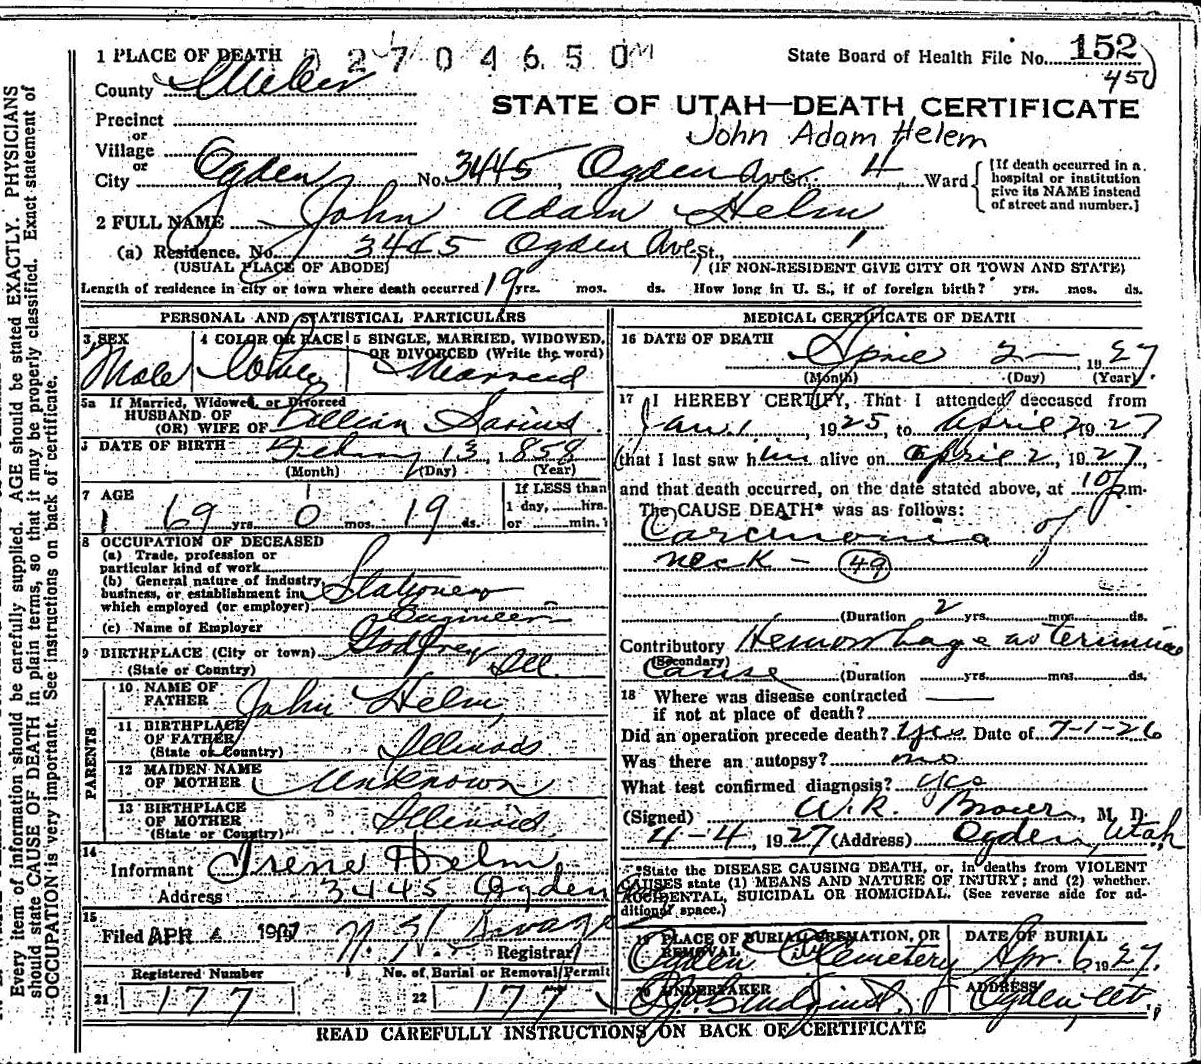 1 PLACE OF DEATH 027046 50 M State Board of Health File No. 152
450
County Weber
STATE OF UTAH—DEATH CERTIFICATE
Precinct
John Adam Helem
or
Village
or
City Ogden No. 3445, Ogden Ave St. 4 Ward [If death occurred in a hospital or institution give its NAME instead of street and number.]
2 FULL NAME John Adam Helm
(a) Residence. No. 3445 Ogden Ave St.,
(USUAL PLACE OF ABODE) (IF NON-RESIDENT GIVE CITY OR TOWN AND STATE)
Length of residence in city or town where death occurred 19 yrs. mos. ds. How long in U. S., if of foreign birth? yrs. mos. ds.
PERSONAL AND STATISTICAL PARTICULARS
3 SEX 4 COLOR OR RACE 5 SINGLE, MARRIED, WIDOWED, OR DIVORCED (Write the word)
Male White Married
5a If Married, Widowed, or Divorced
HUSBAND OF
(OR) WIFE OF Lillian
6 DATE OF BIRTH 13, 1858
(Month) (Day) (Year)
7 AGE If LESS than
69 yrs 0 mos. 19 ds. 1 day, hrs.
or min.
8 OCCUPATION OF DECEASED
(a) Trade, profession or
particular kind of work
(b) General nature of industry,
business, or establishment in Stationery
which employed (or employer) Engineer
(c) Name of Employer
9 BIRTHPLACE (City or town) Godfrey
(State or Country) Ill.
PARENTS
10 NAME OF
FATHER John Helm
11 BIRTHPLACE
OF FATHER
(State or Country) Illinois
12 MAIDEN NAME
OF MOTHER Unknown
13 BIRTHPLACE
OF MOTHER
(State or Country) Illinois
14
Informant Irene Helm
Address 3445 Ogden
15
Filed APR 4 19
Registrar
Registered Number No. of Burial or Removal Permit
21 177 22 177
MEDICAL CERTIFICATE OF DEATH
16 DATE OF DEATH April 2— 1927.
(Month) (Day) (Year)
17 I HEREBY CERTIFY, That I attended deceased from
Jan 1, 1925, to April 2 1927
that I last saw him alive on April 2, 1927,
and that death occurred, on the date stated above, at 10 p.m.
The CAUSE DEATH* was as follows:
Carcinoma of
neck – 49
(Duration 2 yrs. mos. ds.
Contributory Hemorrhage as terminal
(Secondary)
Cause (Duration yrs. mos. ds.
18 Where was disease contracted
if not at place of death?
Did an operation precede death? Yes Date of 7-1-26
Was there an autopsy? no
What test confirmed diagnosis? yes
(Signed) W. R. Brown, M. D.
4-4, 1927 (Address) Ogden, Utah
*State the DISEASE CAUSING DEATH, or, in deaths from VIOLENT
CAUSES state (1) MEANS AND NATURE OF INJURY; and (2) whether
ACCIDENTAL, SUICIDAL OR HOMICIDAL. (See reverse side for ad-
ditional space.)
19 PLACE OF BURIAL CREMATION, OR REMOVAL DATE OF BURIAL
Ogden Cemetery Apr. 6 1927.
20 UNDERTAKER ADDRESS
Lindquist Ogden, Ut.
READ CAREFULLY INSTRUCTIONS ON BACK OF CERTIFICATE
Every item of information should be carefully supplied. AGE should be stated EXACTLY. PHYSICIANS
should state CAUSE OF DEATH in plain terms, so that it may be properly classified. Exact statement of
OCCUPATION is very important. See instructions on back of certificate.